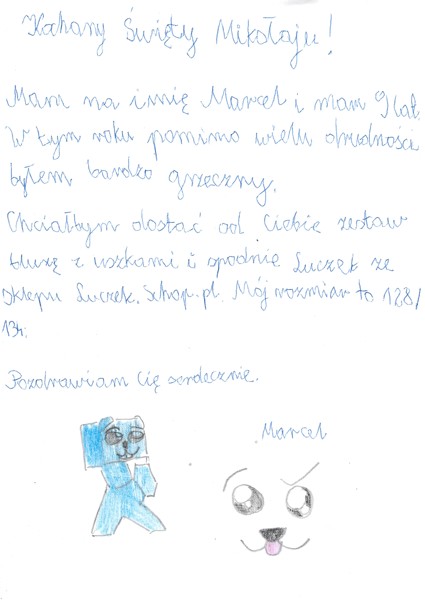 Kochany Święty Mikołaju!
Mam na imię Marcel i mam 9 lat.
W tym roku pomimo wielu trudności
byłem bardzo grzeczny.
Chciałbym dostać od Ciebie zestaw
bluzę z uszkami i spodnie Luczek ze
sklepu Luczek.schop.pl. Mój rozmiar to 128/
134.
Pozdrawiam Cię serdecznie.
Marcel